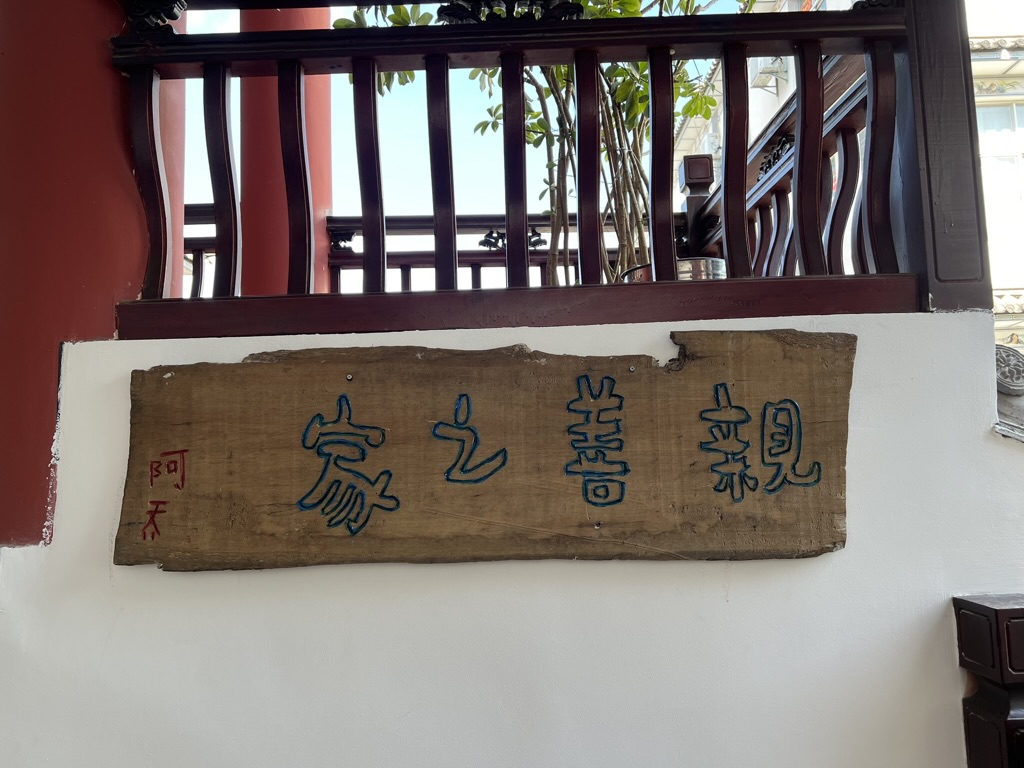 親善之家
阿乔